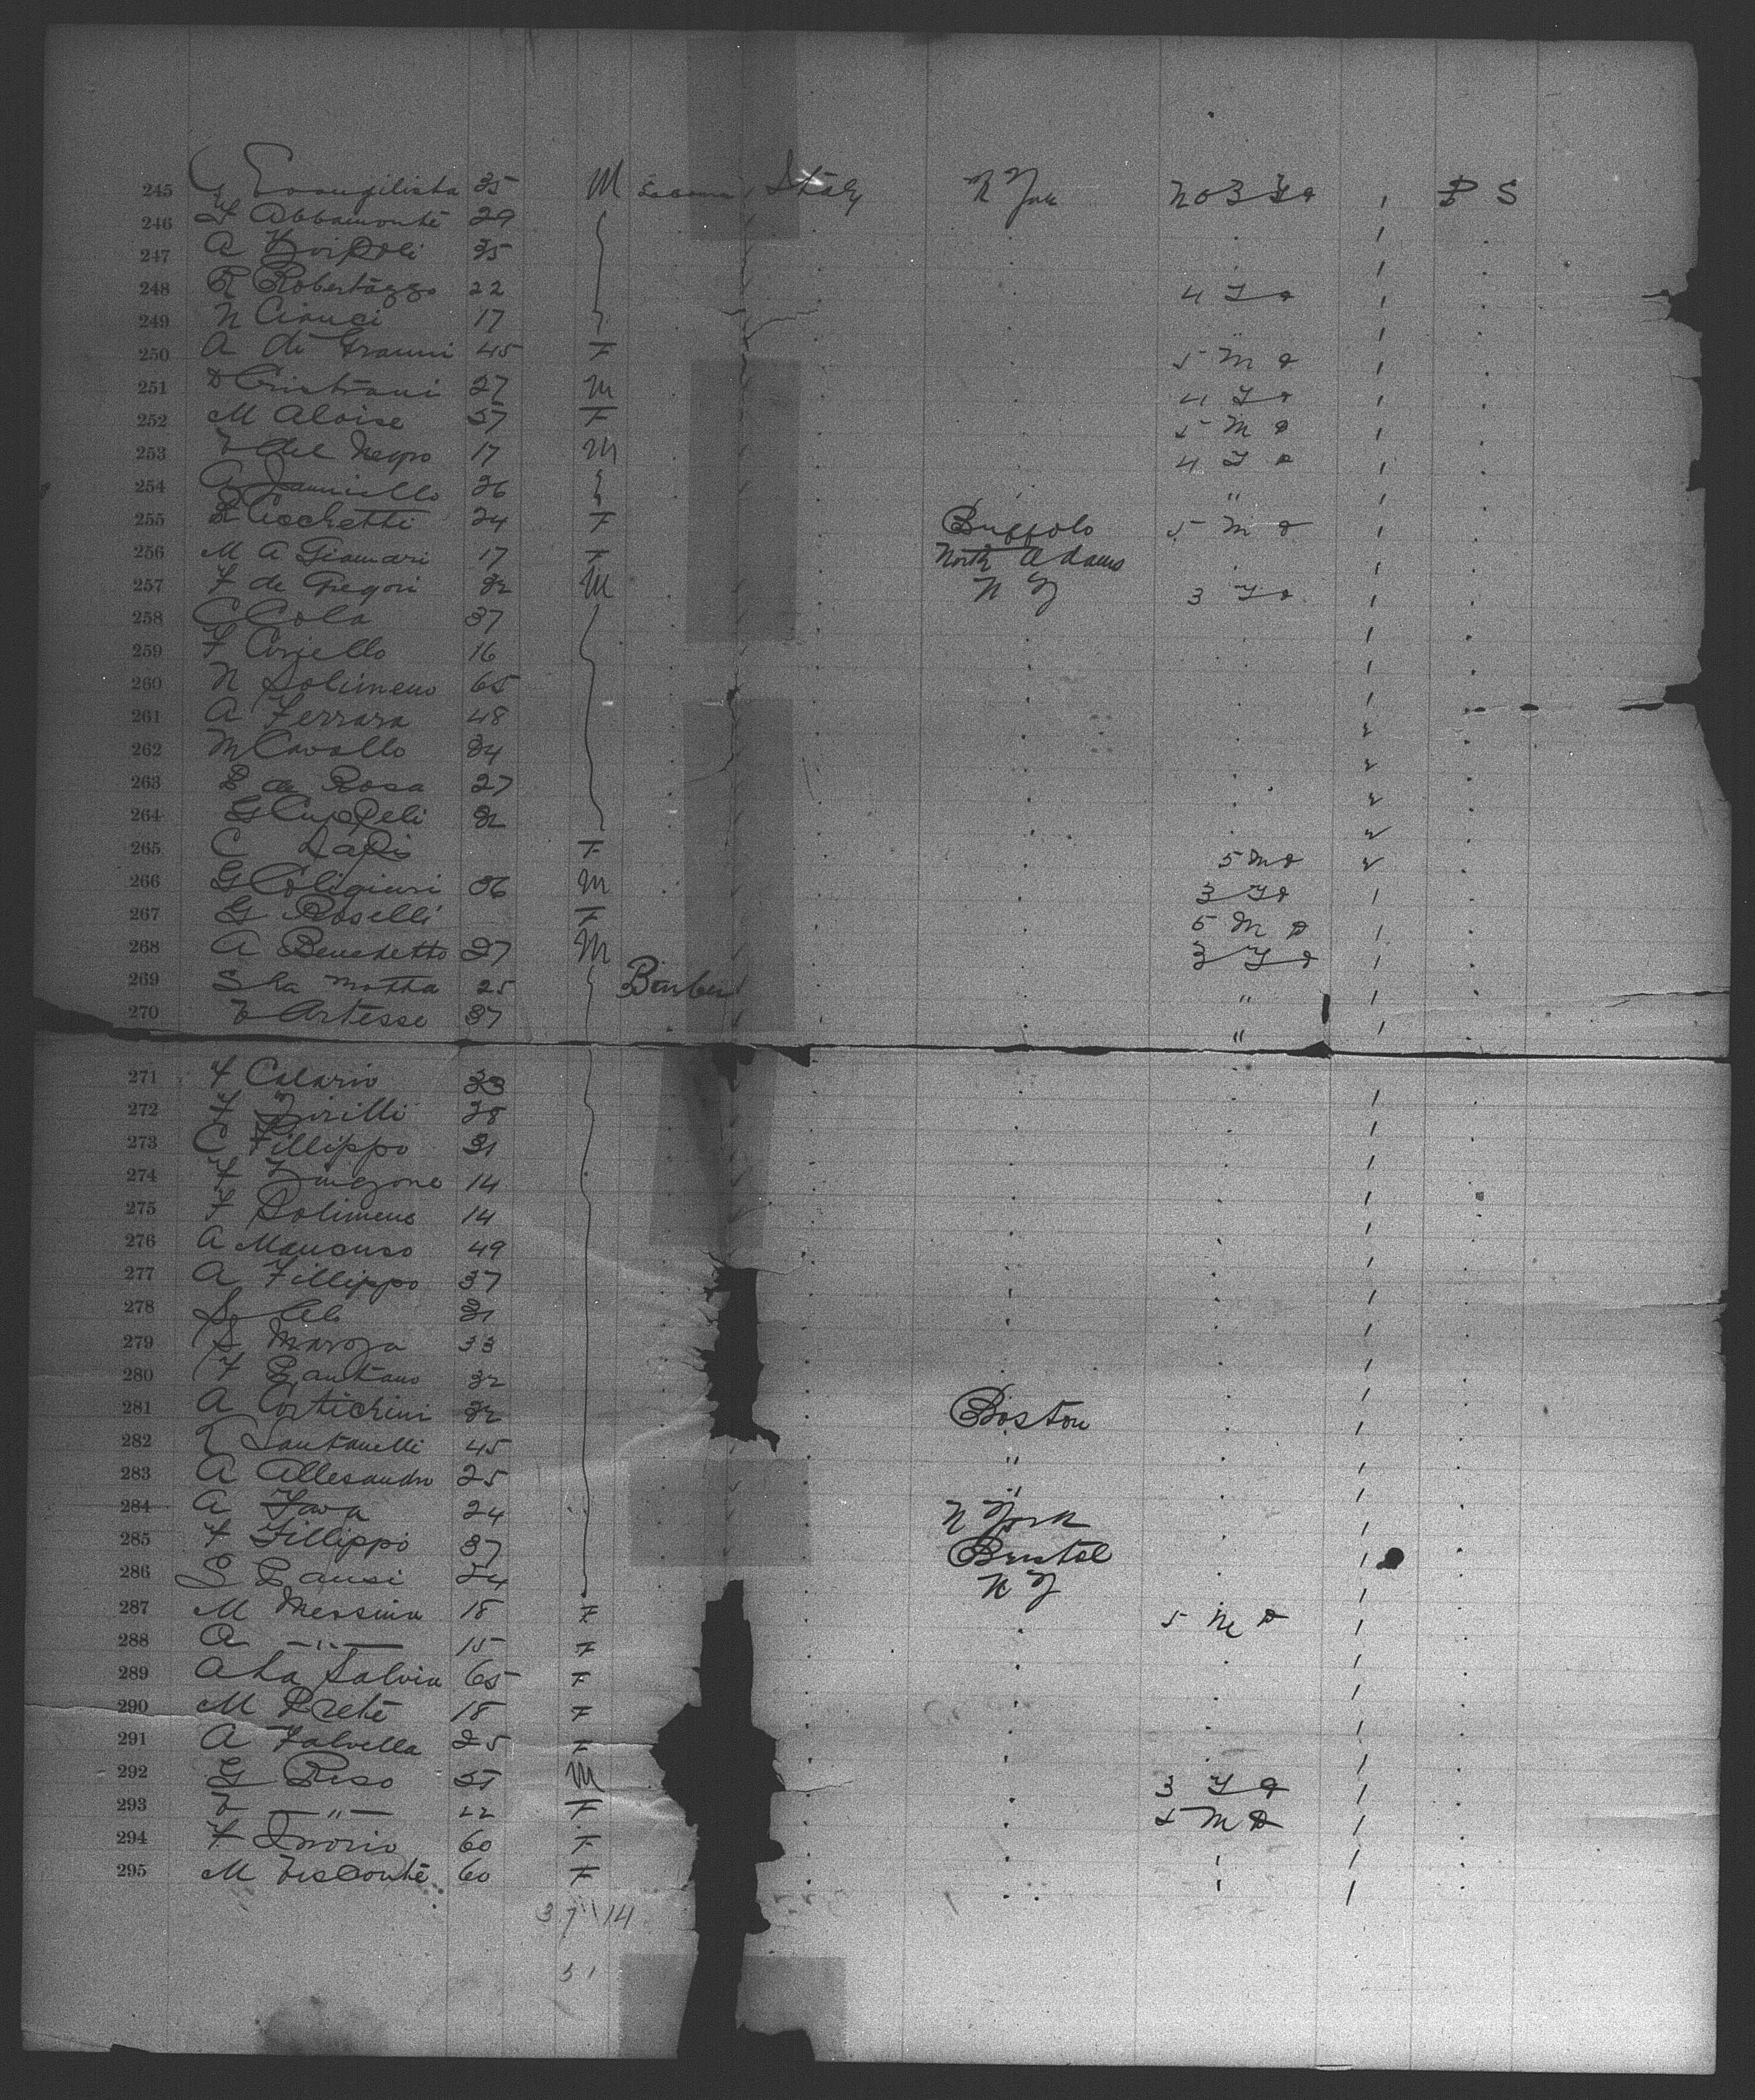 245 G Evangilista 35 M Labourer Italy N York No 3 T D 1 P S
246 F Abbamonte 29
247 A 35
248 R Robertazzo 22 4 T D
249 N Cianci 17
250 A di 45 F 5 M D
251 D Cristiani 27 M 4 T D
252 M Aloise 57 F 5 M D
253 V del Negro 17 M 4 T D
254 A Janniello 26 "
255 Cochetti 24 F Buffolo 5 M D
256 M A Giamari 17 F North Adams
257 F de Gregori 32 M N Y 3 T D
258 C Cola 37
259 F Ciriello 16
260 N Solimeno 65
261 A Ferrara 48
262 M Cavallo 34
263 de Rosa 27
264 G Cuppeli 32
265 C Lapis F 5 M D
266 G Coligiuri 36 M 3 T D
267 G Roselli F 5 M D
268 A Benedetto 27 M 3 T D
269 S La Motta 25 Barber "
270 V Artesse 37 "
271 F Calario 33
272 F Zirilli 28
273 C Fillippo 31
274 F 14
275 F Solimeno 14
276 A Mancuso 49
277 A Fillippo 37
278 S 31
279 S 33
280 F 32
281 A Cortichini 32 Boston
282 Santanelli 45 "
283 A Allesandro 25 "
284 A Fava 24 N York
285 F Fillippo 37 Bristol
286 S 24 N Y
287 M Messina 18 F 5 M D
288 A —"— 15 F
289 A La Salvia 65 F
290 M Prete 18 F
291 A Falvella 25 F
292 G Riso 51 M 3 T D
293 V —"— 22 F 5 M D
294 F 60 F
295 M Visconte 60 F
37 14
51